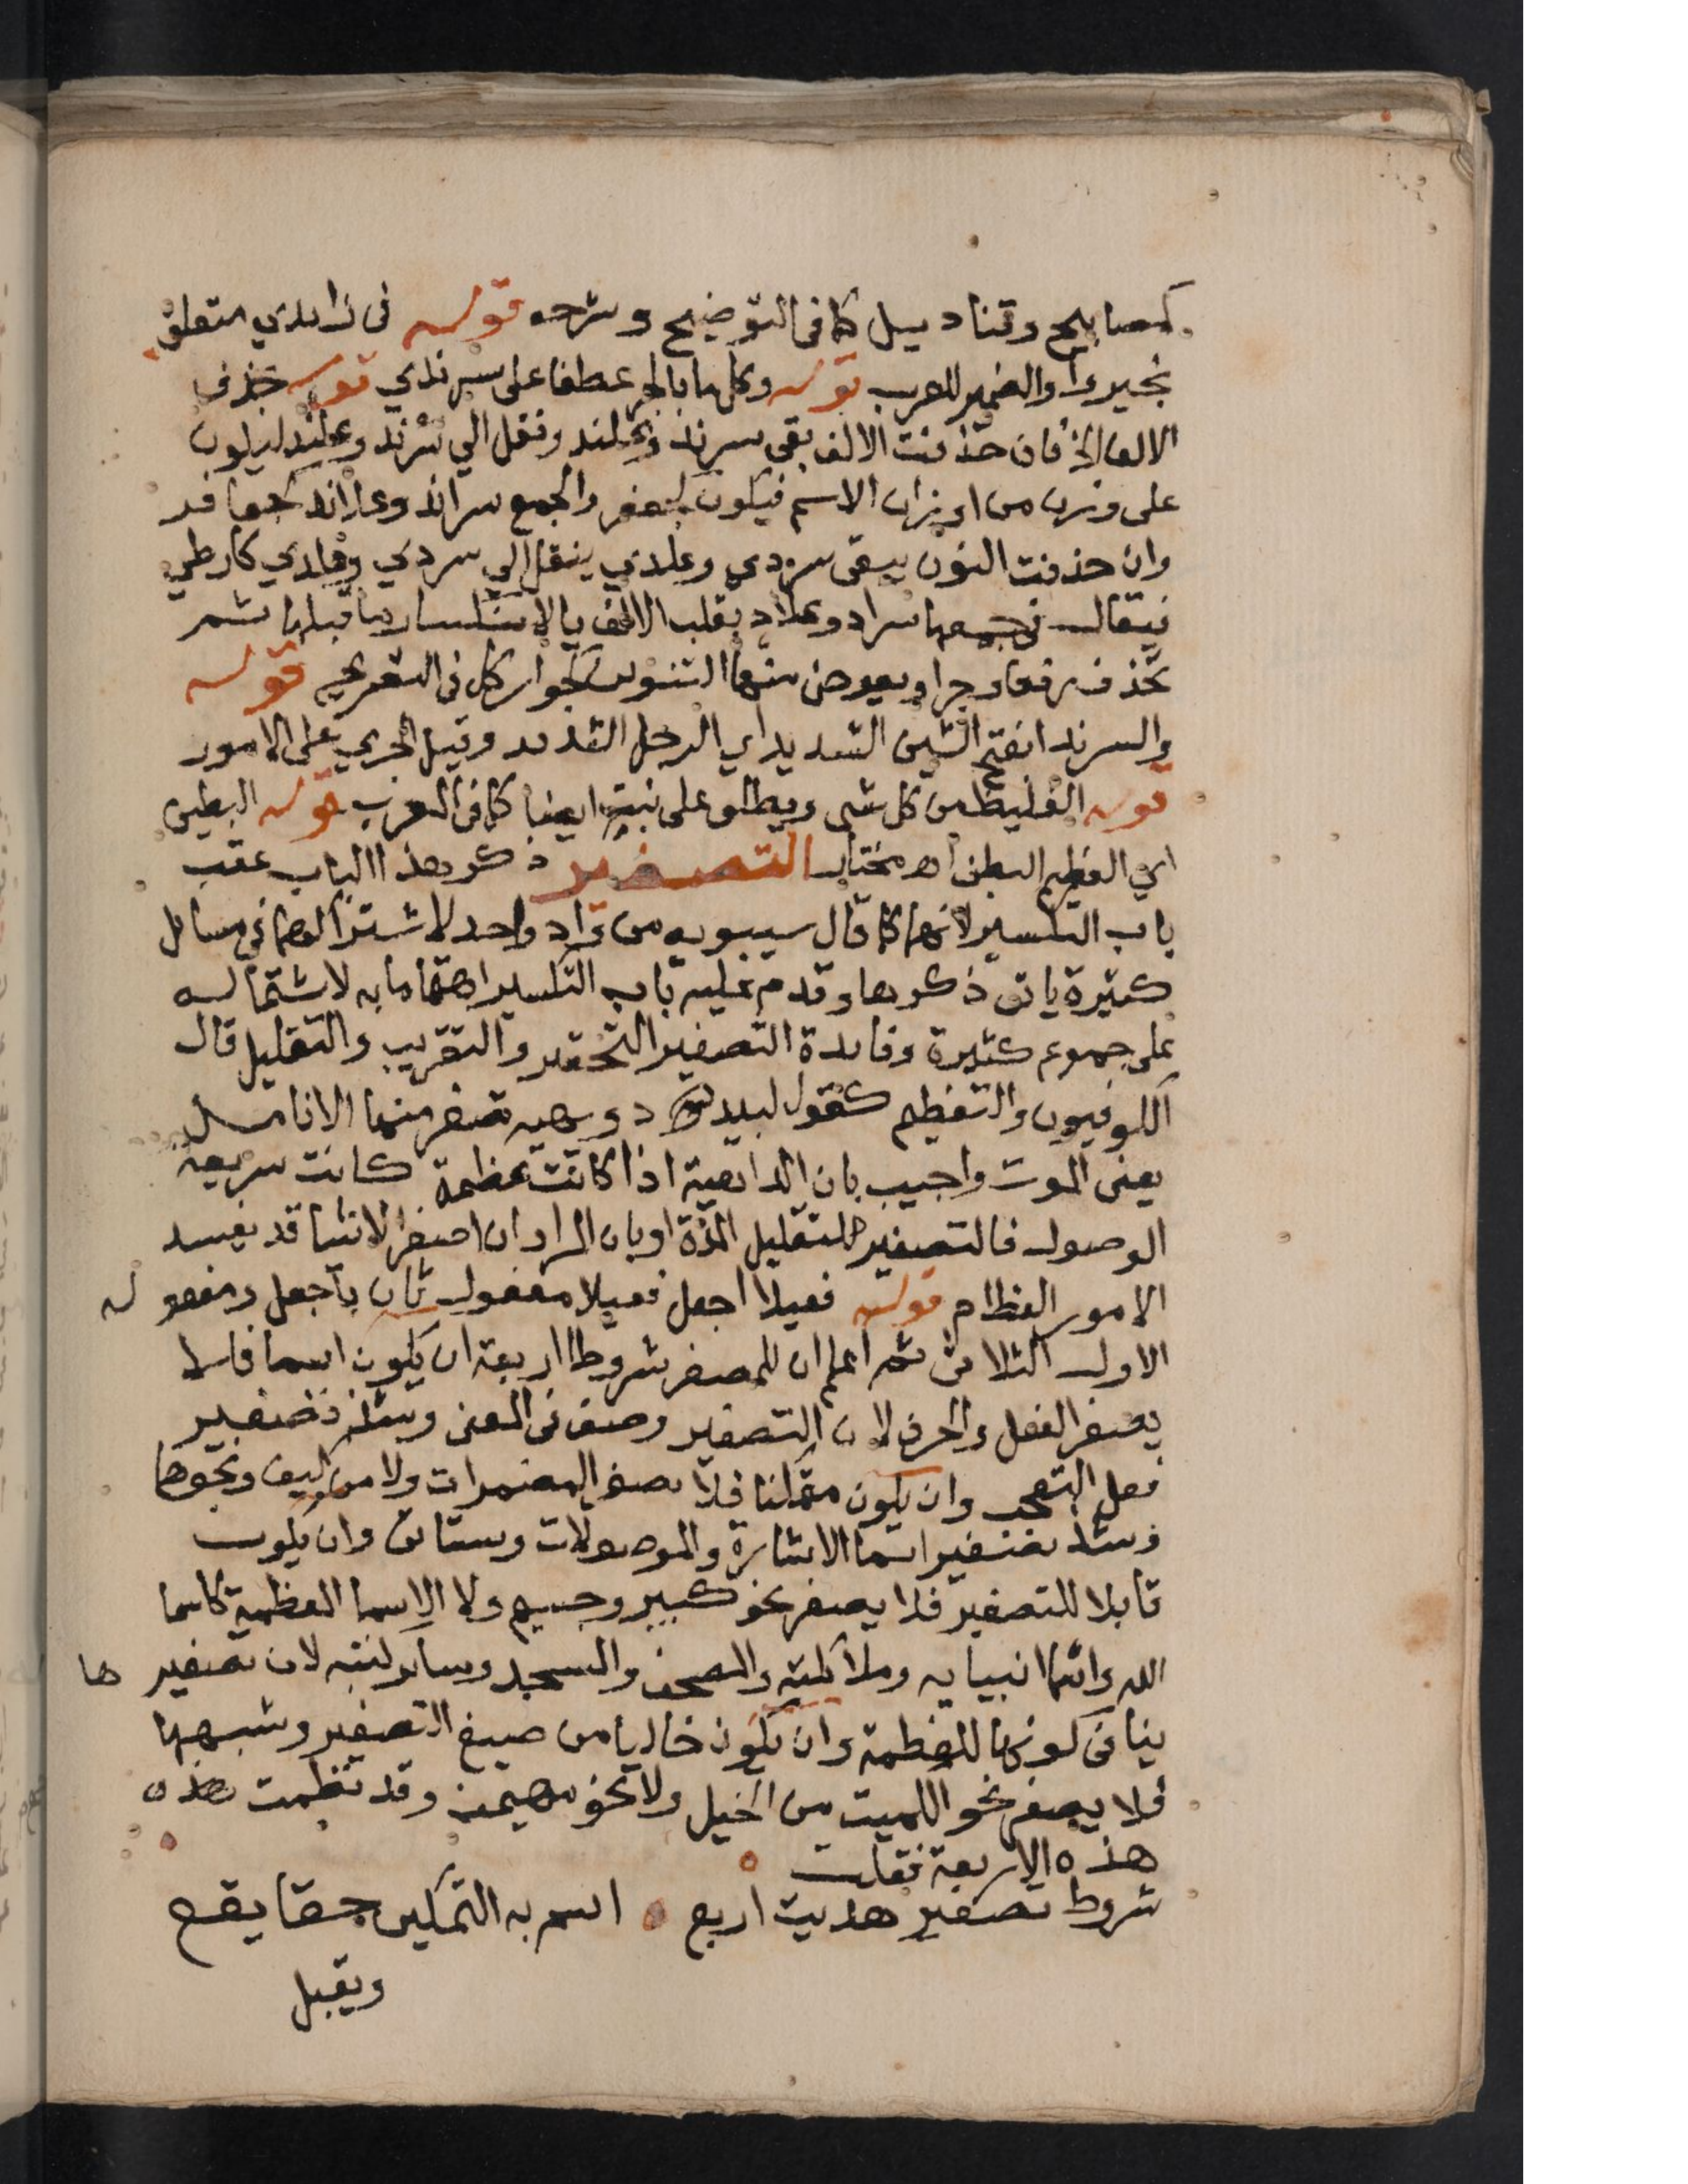 كمصابيح وقناديل كما في التوضيح وشرحه قوله في زايدي متعلق
بخيروا والضمير للعرب قوله وكل ما بالجر عطفا على سرندي قوله بحذف
الالف الخ فان حذفت الالف بقي سرند وعلند ونقل الي سرند وعلند ليكون
على وزن من اوزان الاسم فيكون كجعفر والجمع سراند وعلاند كجعافر
وان حذفت النون يبقى سردي وعلدي ينقل الي سردي وعلدي كارطي
فيقال في جمعهما سراد وعلاد بقلب الالف يا لانكسار ما قبلها ثم
تحذف رفعا وجرا ويعوض منها التنوين كجوار كل في التصريح قوله
والسرندا بفتح السين الشديد اي الرجل الشديد وقيل الجري على الامور
قوله الغليظ من كل شي ويطلق على نبت ايضا كما في العزب قوله البطين
اي العظيم البطن اه مختار التصغير ذكر هذا الباب عقب
باب التكسير لانهما كما قال سيبويه من واد واحد لاشتراكهما في مسايل
كثيرة ياتي ذكرها وقدم عليه باب التكسير اهتماما به لاشتماله
على جموع كثيرة وفايدة التصغير التحقير والتقريب والتقليل قال
الكوفيون والتعظيم كقول لبيد دويهية تصفر منها الانامل
يعني الموت واجيب بان الداهية اذا كانت عظيمة كانت سريعة
الوصول فالتصغير لتقليل المدة او بان المراد ان اصغر الاشيا قد يفسد
الامور العظام قوله فعيلا اجعل فعيلا مفعول ثان باجعل ومفعوله
الاول الثلاثي ثم اعلم ان للمصغر شروطا اربعة ان يكون اسما فلا
يصغر الفعل والحرف لان التصغير وصف في المعنى وشذ تصغير
فعل التعجب وان يكون متمكنا فلا تصغر المضمرات ولا من وكيف ونحوها
وشذ تصغير اسما الاشارة والموصولات وستاتي وان يكون
قابلا للتصغير فلا يصغر نحو كبير وجسيم ولا الاسما العظمية كاسما
الله واسما انبيايه وملائكته والمصحف والمسجد وساير كتبه لان تصغيرها
ينافي كونها للعظمة وان يكون خاليا من صيغ التصغير وشبهها
فلا يصغر نحو الكميت من الخيل ولا نحو مهيمن وقد نظمت هذه
هذه الاربعة فقلت
شروط تصغير هديت اربع اسم به التمكين حقا يقع
ويقبل